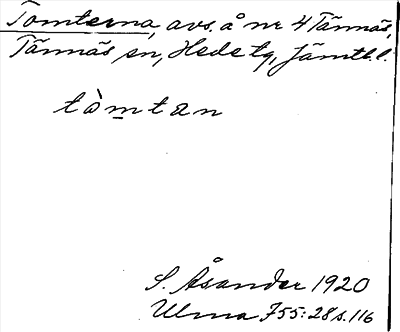 Tomterna, avs. å nr 4 Tännäs,
Tännäs sn, Hede tg, Jämtl. l.
tòm̲tan
S. Åsander 1920
Ulma 755:28 s. 116